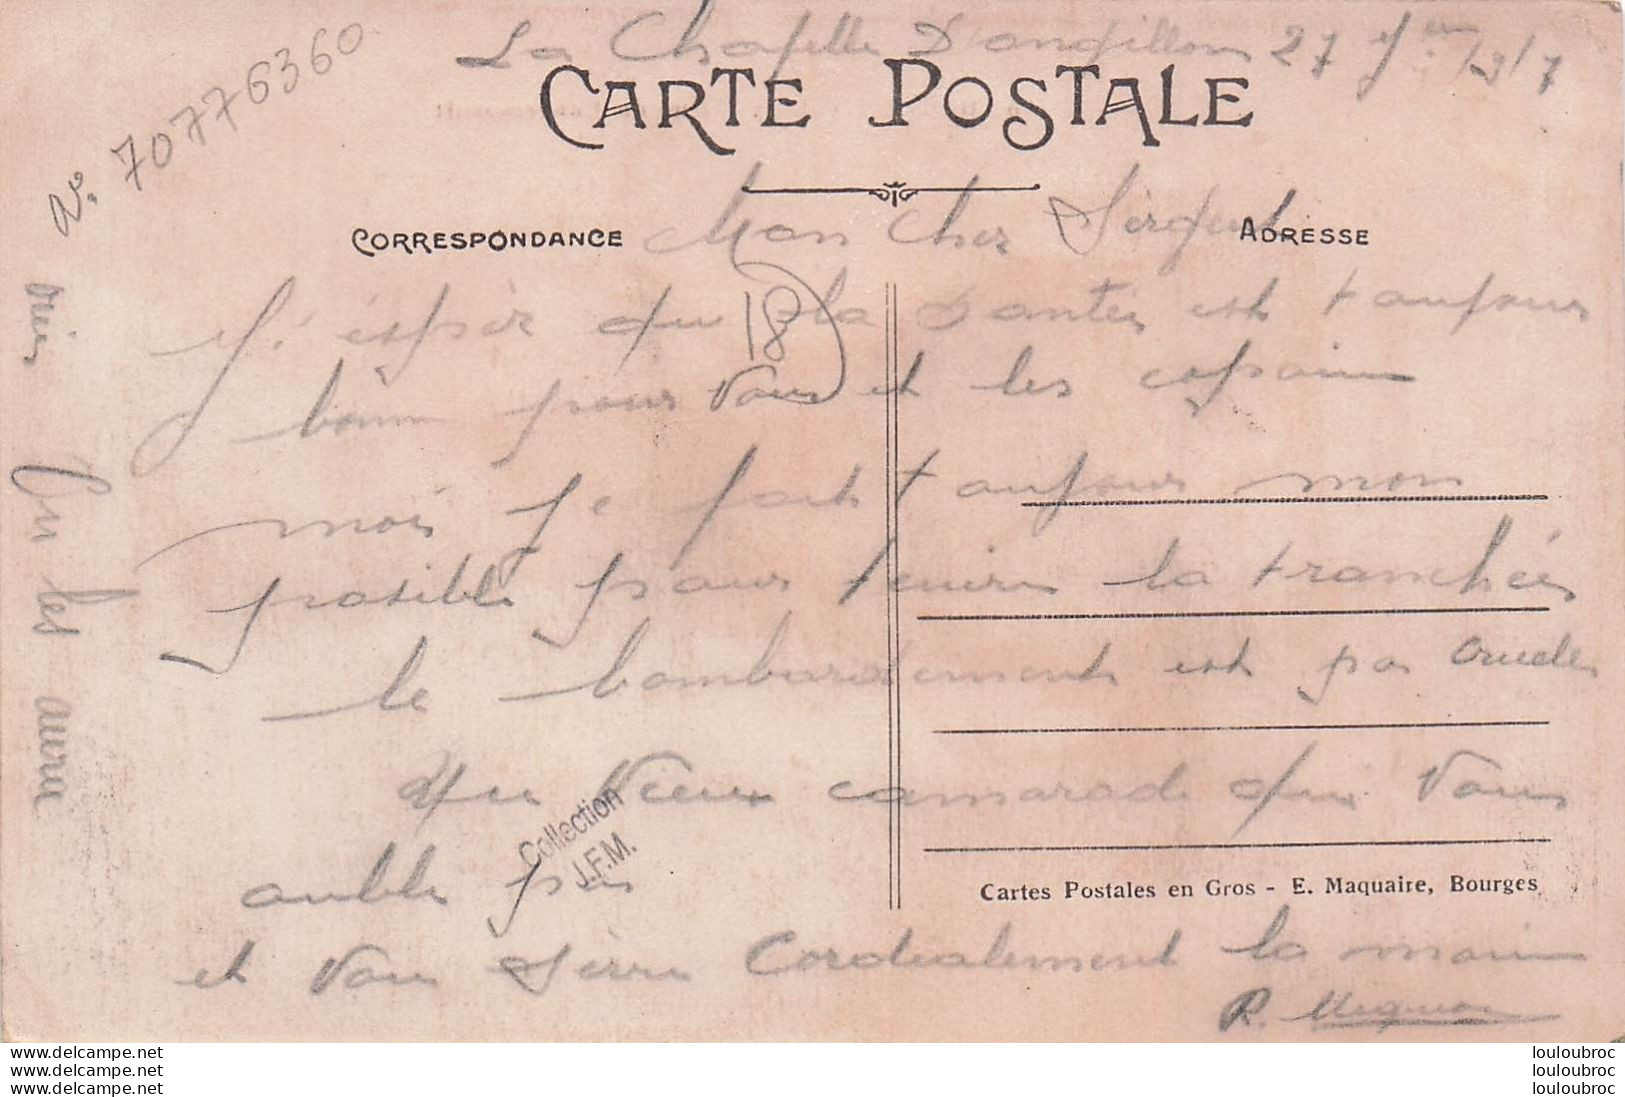 La Chapelle D'angillon 27 1917
CARTE POSTALE
N°. 70776360
CORRESPONDANCE
ADRESSE
Mon Cher Sergent
J'éspèr que la Santés est toujour
18
bonn pour Vous et les copain
moi je fait toujour mon
posible pour tenire la tranchées
le bombardement est pa cruelle
Un Vieux camarade qui Vous
oublle pas
et Vous Serre Cordialement la main
R. Mignon
On les aura
Collection
J.F.M.
Cartes Postales en Gros - E. Maquaire, Bourges
www.delcampe.net
www.delcampe.net
www.delcampe.net
louloubroc
louloubroc
louloubroc